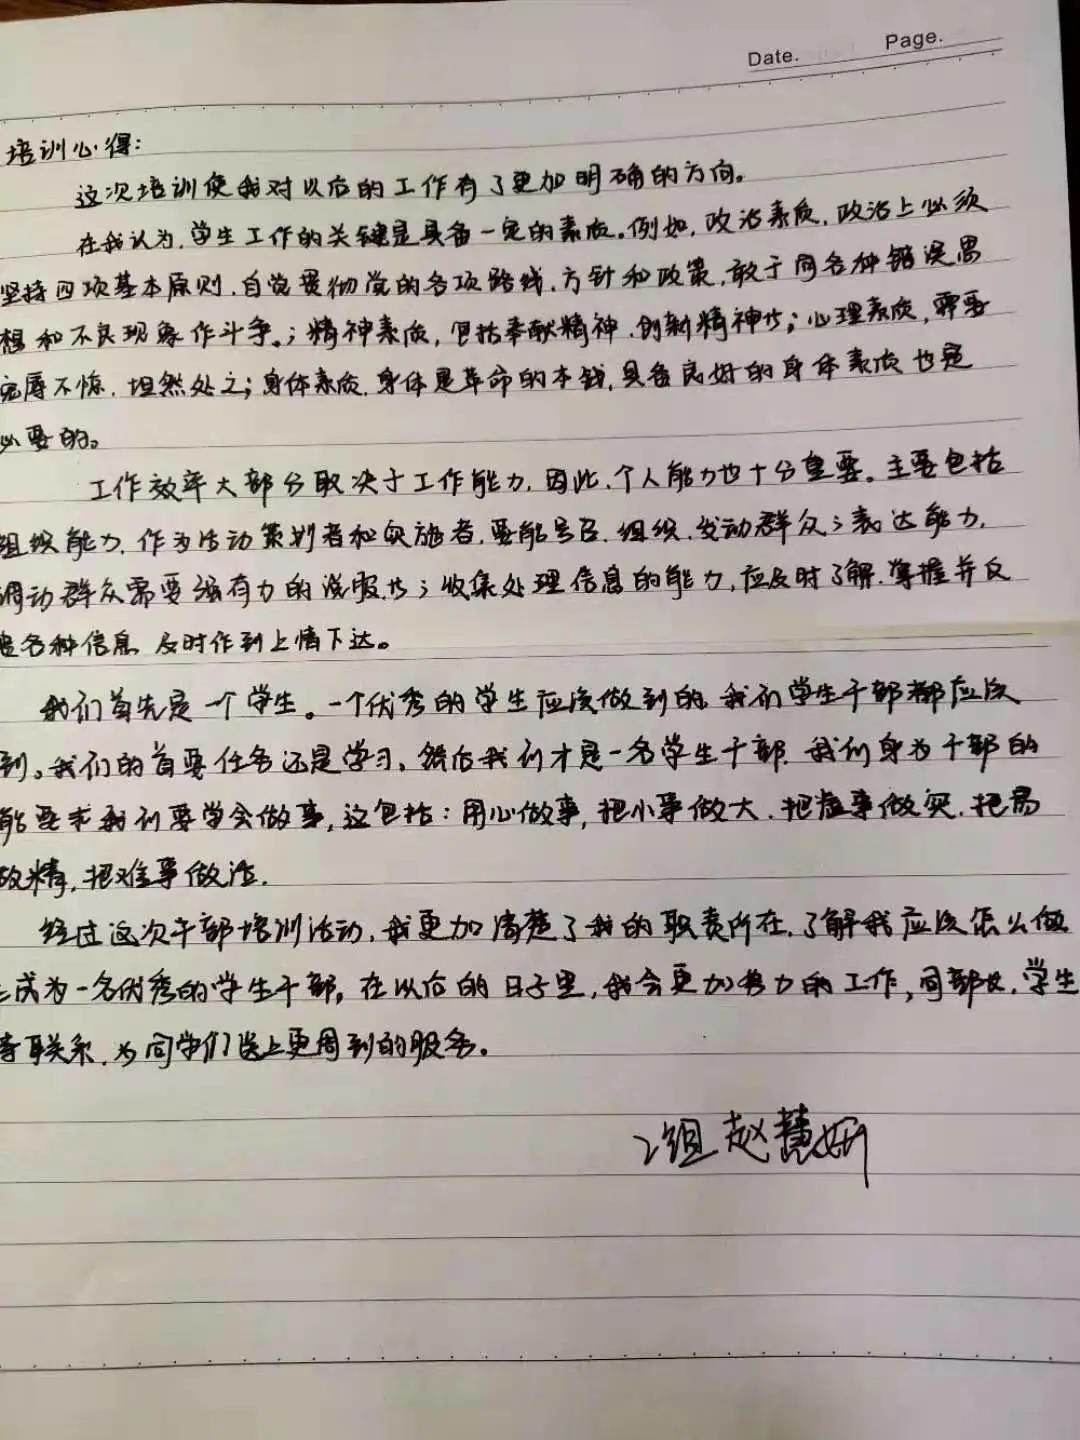 Date. Page.
培训心得：
这次培训使我对以后的工作有了更加明确的方向。
在我认为，学生工作的关键是具备一定的素质。例如，政治素质，政治上必须
坚持四项基本原则，自觉贯彻党的各项路线，方针和政策，敢于同各种错误思
想和不良现象作斗争。；精神素质，包括奉献精神、创新精神等；心理素质，需要
宠辱不惊，坦然处之；身体素质，身体是革命的本钱，具备良好的身体素质也是
必要的。
工作效率大部分取决于工作能力，因此，个人能力也十分重要。主要包括
组织能力，作为活动策划者和实施者，要能号召、组织、发动群众；表达能力，
调动群众需要强有力的说服等；收集处理信息的能力，应及时了解、掌握并反
各种信息，及时作到上情下达。
我们首先是一个学生。一个优秀的学生应该做到的，我们学生干部都应该
到。我们的首要任务还是学习，然后我们才是一名学生干部，我们身为干部的
能要求我们要学会做事，这包括：用心做事，把小事做大，把虚事做实，把易
做精，把难事做活。
经过这次干部培训活动，我更加清楚了我的职责所在，了解我应该怎么做
成为一名优秀的学生干部，在以后的日子里，我会更加努力的工作，同部长，学生
联系，为同学们送上更周到的服务。
2组 赵慧妍